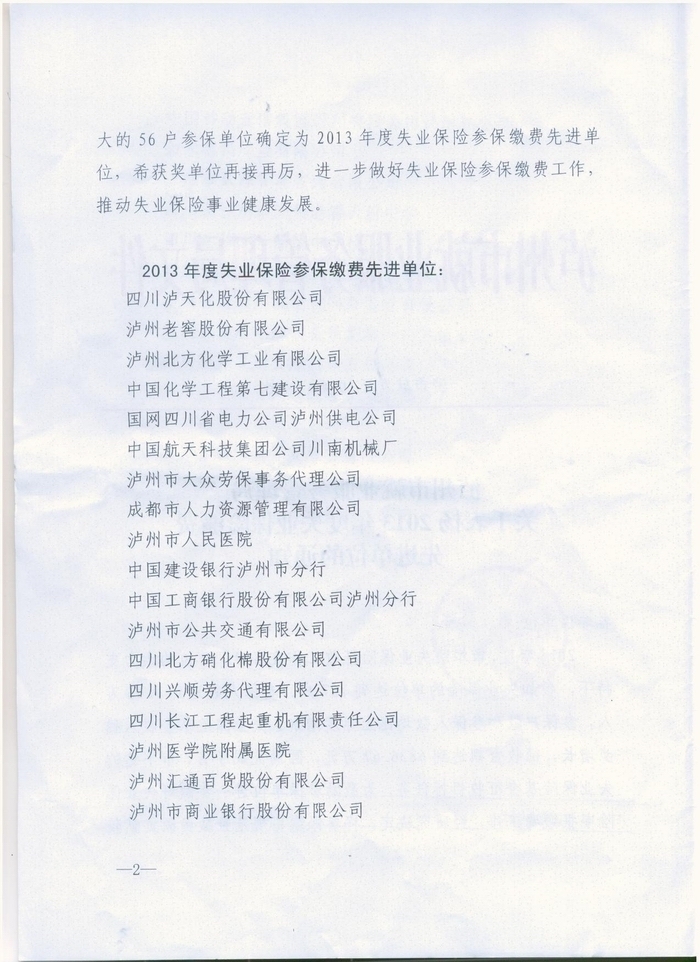 大的 56 户参保单位确定为 2013 年度失业保险参保缴费先进单
位，希获奖单位再接再厉，进一步做好失业保险参保缴费工作，
推动失业保险事业健康发展。
2013 年度失业保险参保缴费先进单位：
四川泸天化股份有限公司
泸州老窖股份有限公司
泸州北方化学工业有限公司
中国化学工程第七建设有限公司
国网四川省电力公司泸州供电公司
中国航天科技集团公司川南机械厂
泸州市大众劳保事务代理公司
成都市人力资源管理有限公司
泸州市人民医院
中国建设银行泸州市分行
中国工商银行股份有限公司泸州分行
泸州市公共交通有限公司
四川北方硝化棉股份有限公司
四川兴顺劳务代理有限公司
四川长江工程起重机有限责任公司
泸州医学院附属医院
泸州汇通百货股份有限公司
泸州市商业银行股份有限公司
—2—